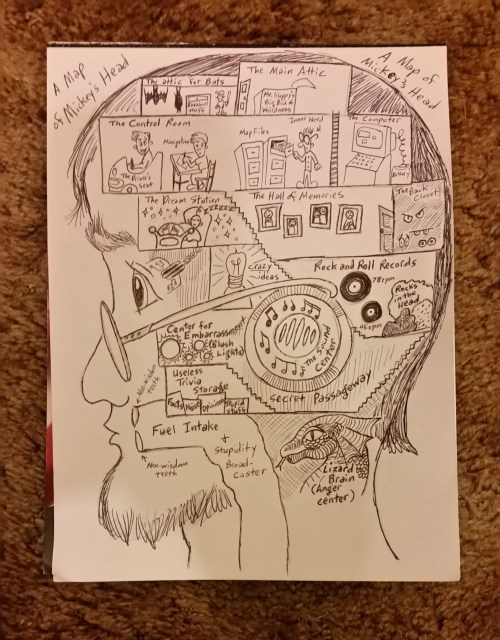 A Map
of Mickey's Head
A Map of
Mickey's Head
The attic for Bats
Baseball
The Main Attic
Mr. Guppy's
Big Box of
Weirdness
The Control Room
Navigation
The Driver's
Seat
Map Files
Inner Nerd
The Computer
The Dream Station
ZZZZZ
The Hall of Memories
The Back
Closet
crazy
ideas
Rock and Roll Records
78rpm
45rpm
Rocks
in the
Head
Center for
Embarrassment
(Blush
Lights)
The Sound
Center
Useless
Trivia
Storage
Facts
Opinions
Stupid
stuff
Secret Passageway
Non-wisdom
teeth
Fuel Intake
+
Stupidity
Broad-
caster
Non-wisdom
teeth
Lizard
Brain
(Anger
center)